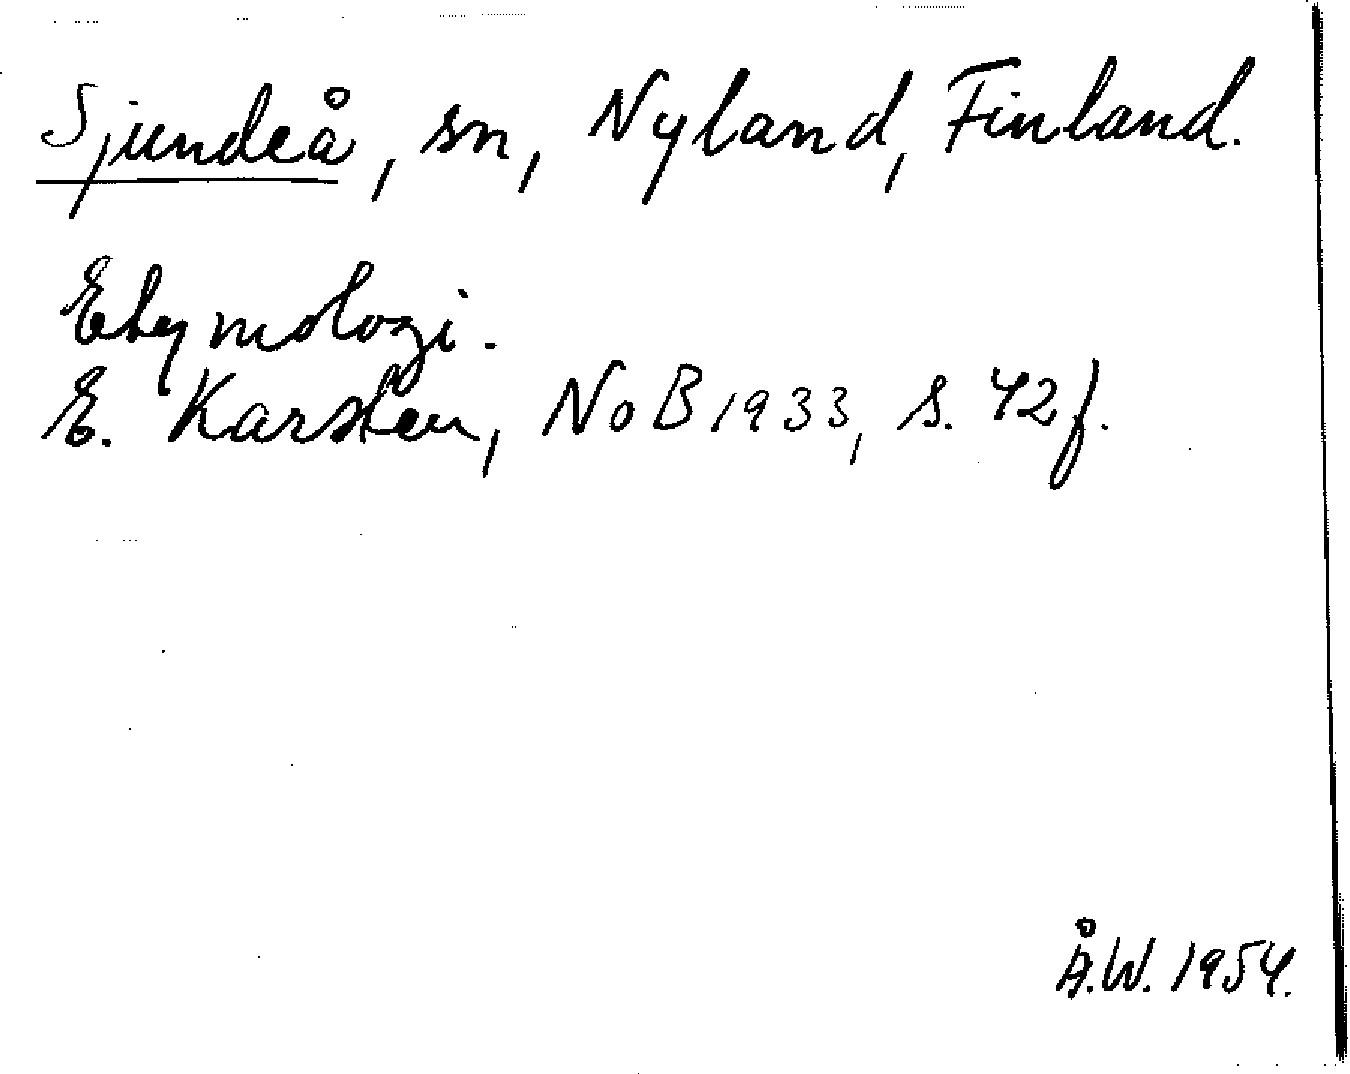 Sjundeå, sn, Nyland, Finland.
Etymologi.
E. Karsten, NoB 1933, s. 42 f.
Å.W. 1954.